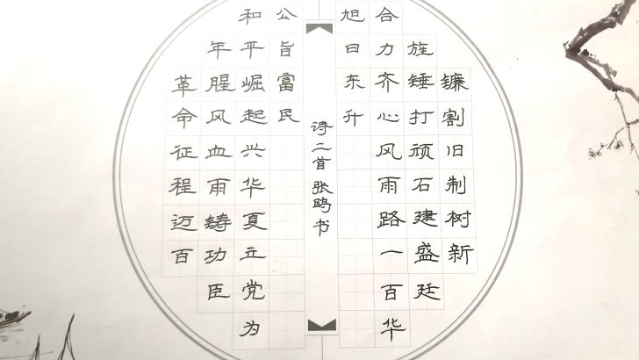 镰割旧制树新
旌锤打顽石建盛廷
合力齐心风雨路一百华
旭日东升
革命征程迈百
年腥风血雨铸功臣
和平崛起兴华夏立党为
公旨富民
诗二首 张鸥书